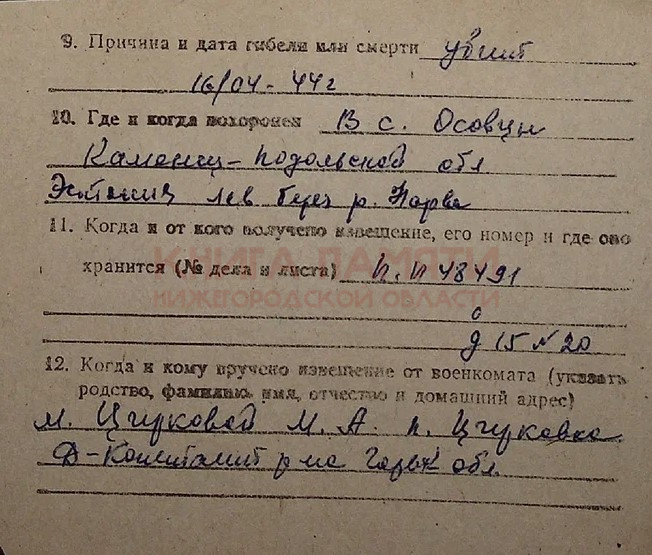 9. Причина и дата гибели или смерти убит
16/04-44г
10. Где и когда похоронен В с. Осовцы
Каменец-Подольской обл
Эстония лев берег р. Нарва
11. Когда и от кого получено извещение, его номер и где оно
хранится (№ дела и листа) п.п 48491
КНИГА ПАМЯТИ
НИЖЕГОРОДСКОЙ ОБЛАСТИ
д 15 № 20
12. Когда и кому вручено извещение от военкомата (указать
родство, фамилию, имя, отчество и домашний адрес)
м. М. А. п.
Д-Константин р-на Горьк обл.